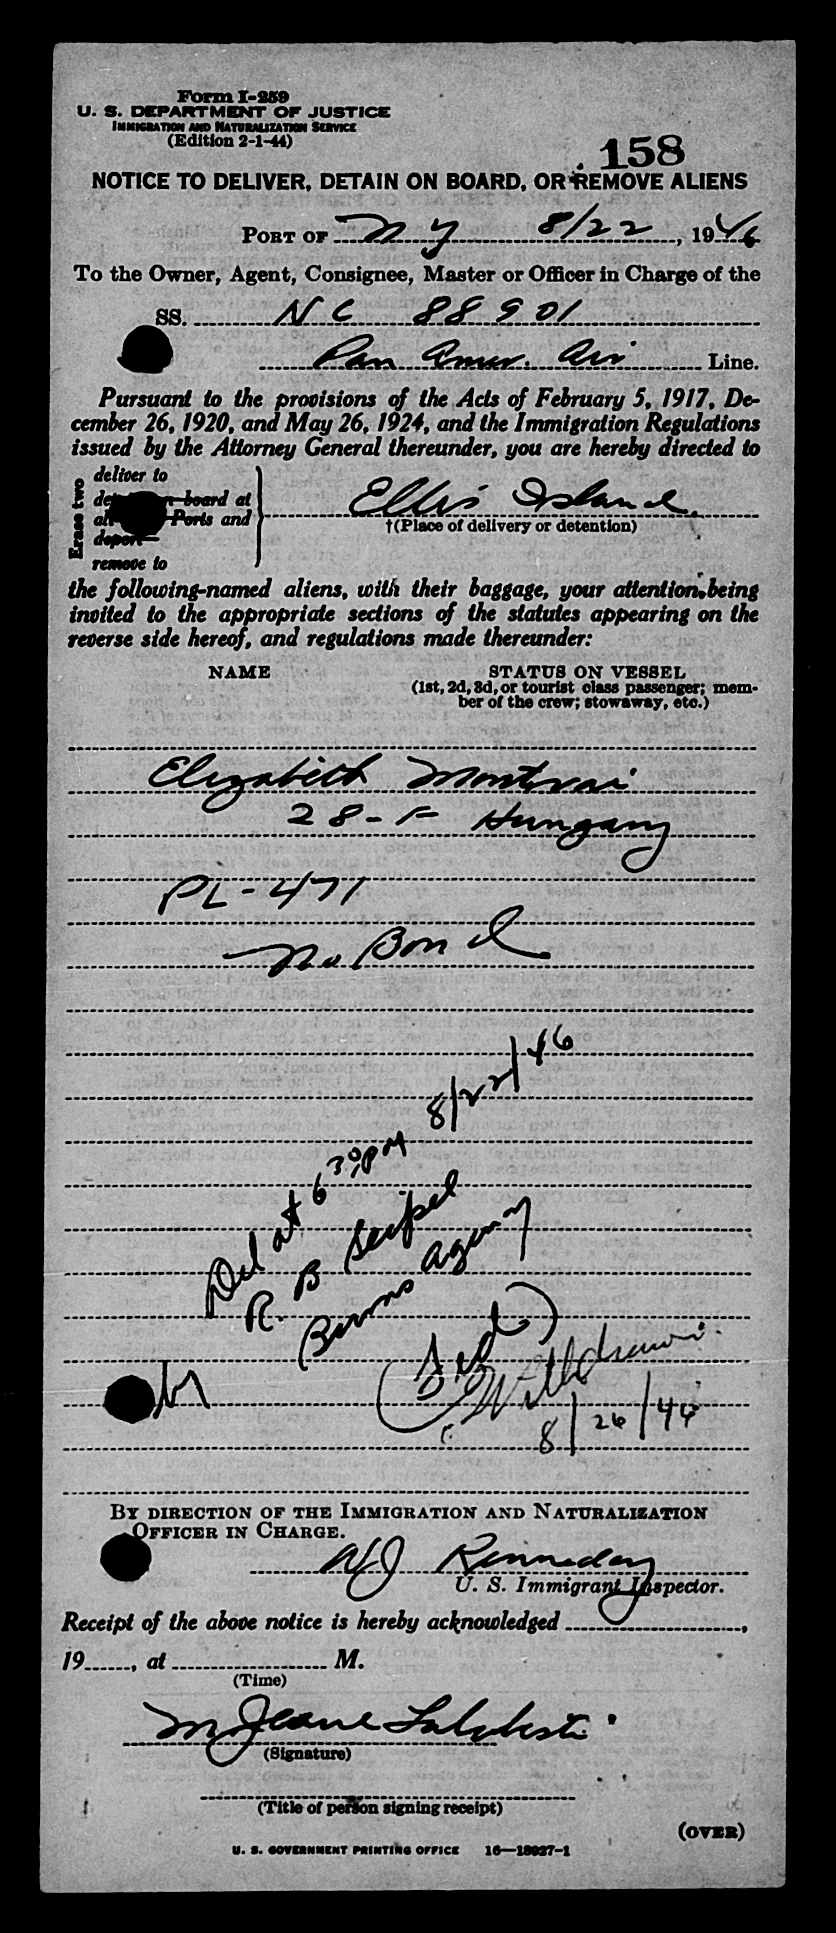 Form I-259
U. S. DEPARTMENT OF JUSTICE
IMMIGRATION AND NATURALIZATION SERVICE
(Edition 2-1-44)
158
NOTICE TO DELIVER, DETAIN ON BOARD, OR REMOVE ALIENS
PORT OF N Y 8/22, 1946
To the Owner, Agent, Consignee, Master or Officer in Charge of the
SS. NC 88901
Pan Amer. Air Line.
Pursuant to the provisions of the Acts of February 5, 1917, De-
cember 26, 1920, and May 26, 1924, and the Immigration Regulations
issued by the Attorney General thereunder, you are hereby directed to
Erase two
deliver to
board at
Ports and
deport
remove to
Ellis Island.
†(Place of delivery or detention)
the following-named aliens, with their baggage, your attention being
invited to the appropriate sections of the statutes appearing on the
reverse side hereof, and regulations made thereunder:
NAME STATUS ON VESSEL
(1st, 2d, 3d, or tourist class passenger; mem-
ber of the crew; stowaway, etc.)
Elizabeth
28-F Hungary
PL-471
No Bond
Del at 6 30 PM 8/22/46
R. B Seipel
Burns Agency
by
Withdrawn
8/26/46
BY DIRECTION OF THE IMMIGRATION AND NATURALIZATION
OFFICER IN CHARGE.
Kennedy
U. S. Immigrant Inspector.
Receipt of the above notice is hereby acknowledged ,
19 , at M.
(Time)
M Jeane
(Signature)
(Title of person signing receipt)
(OVER)
U. S. GOVERNMENT PRINTING OFFICE 16—18027-1